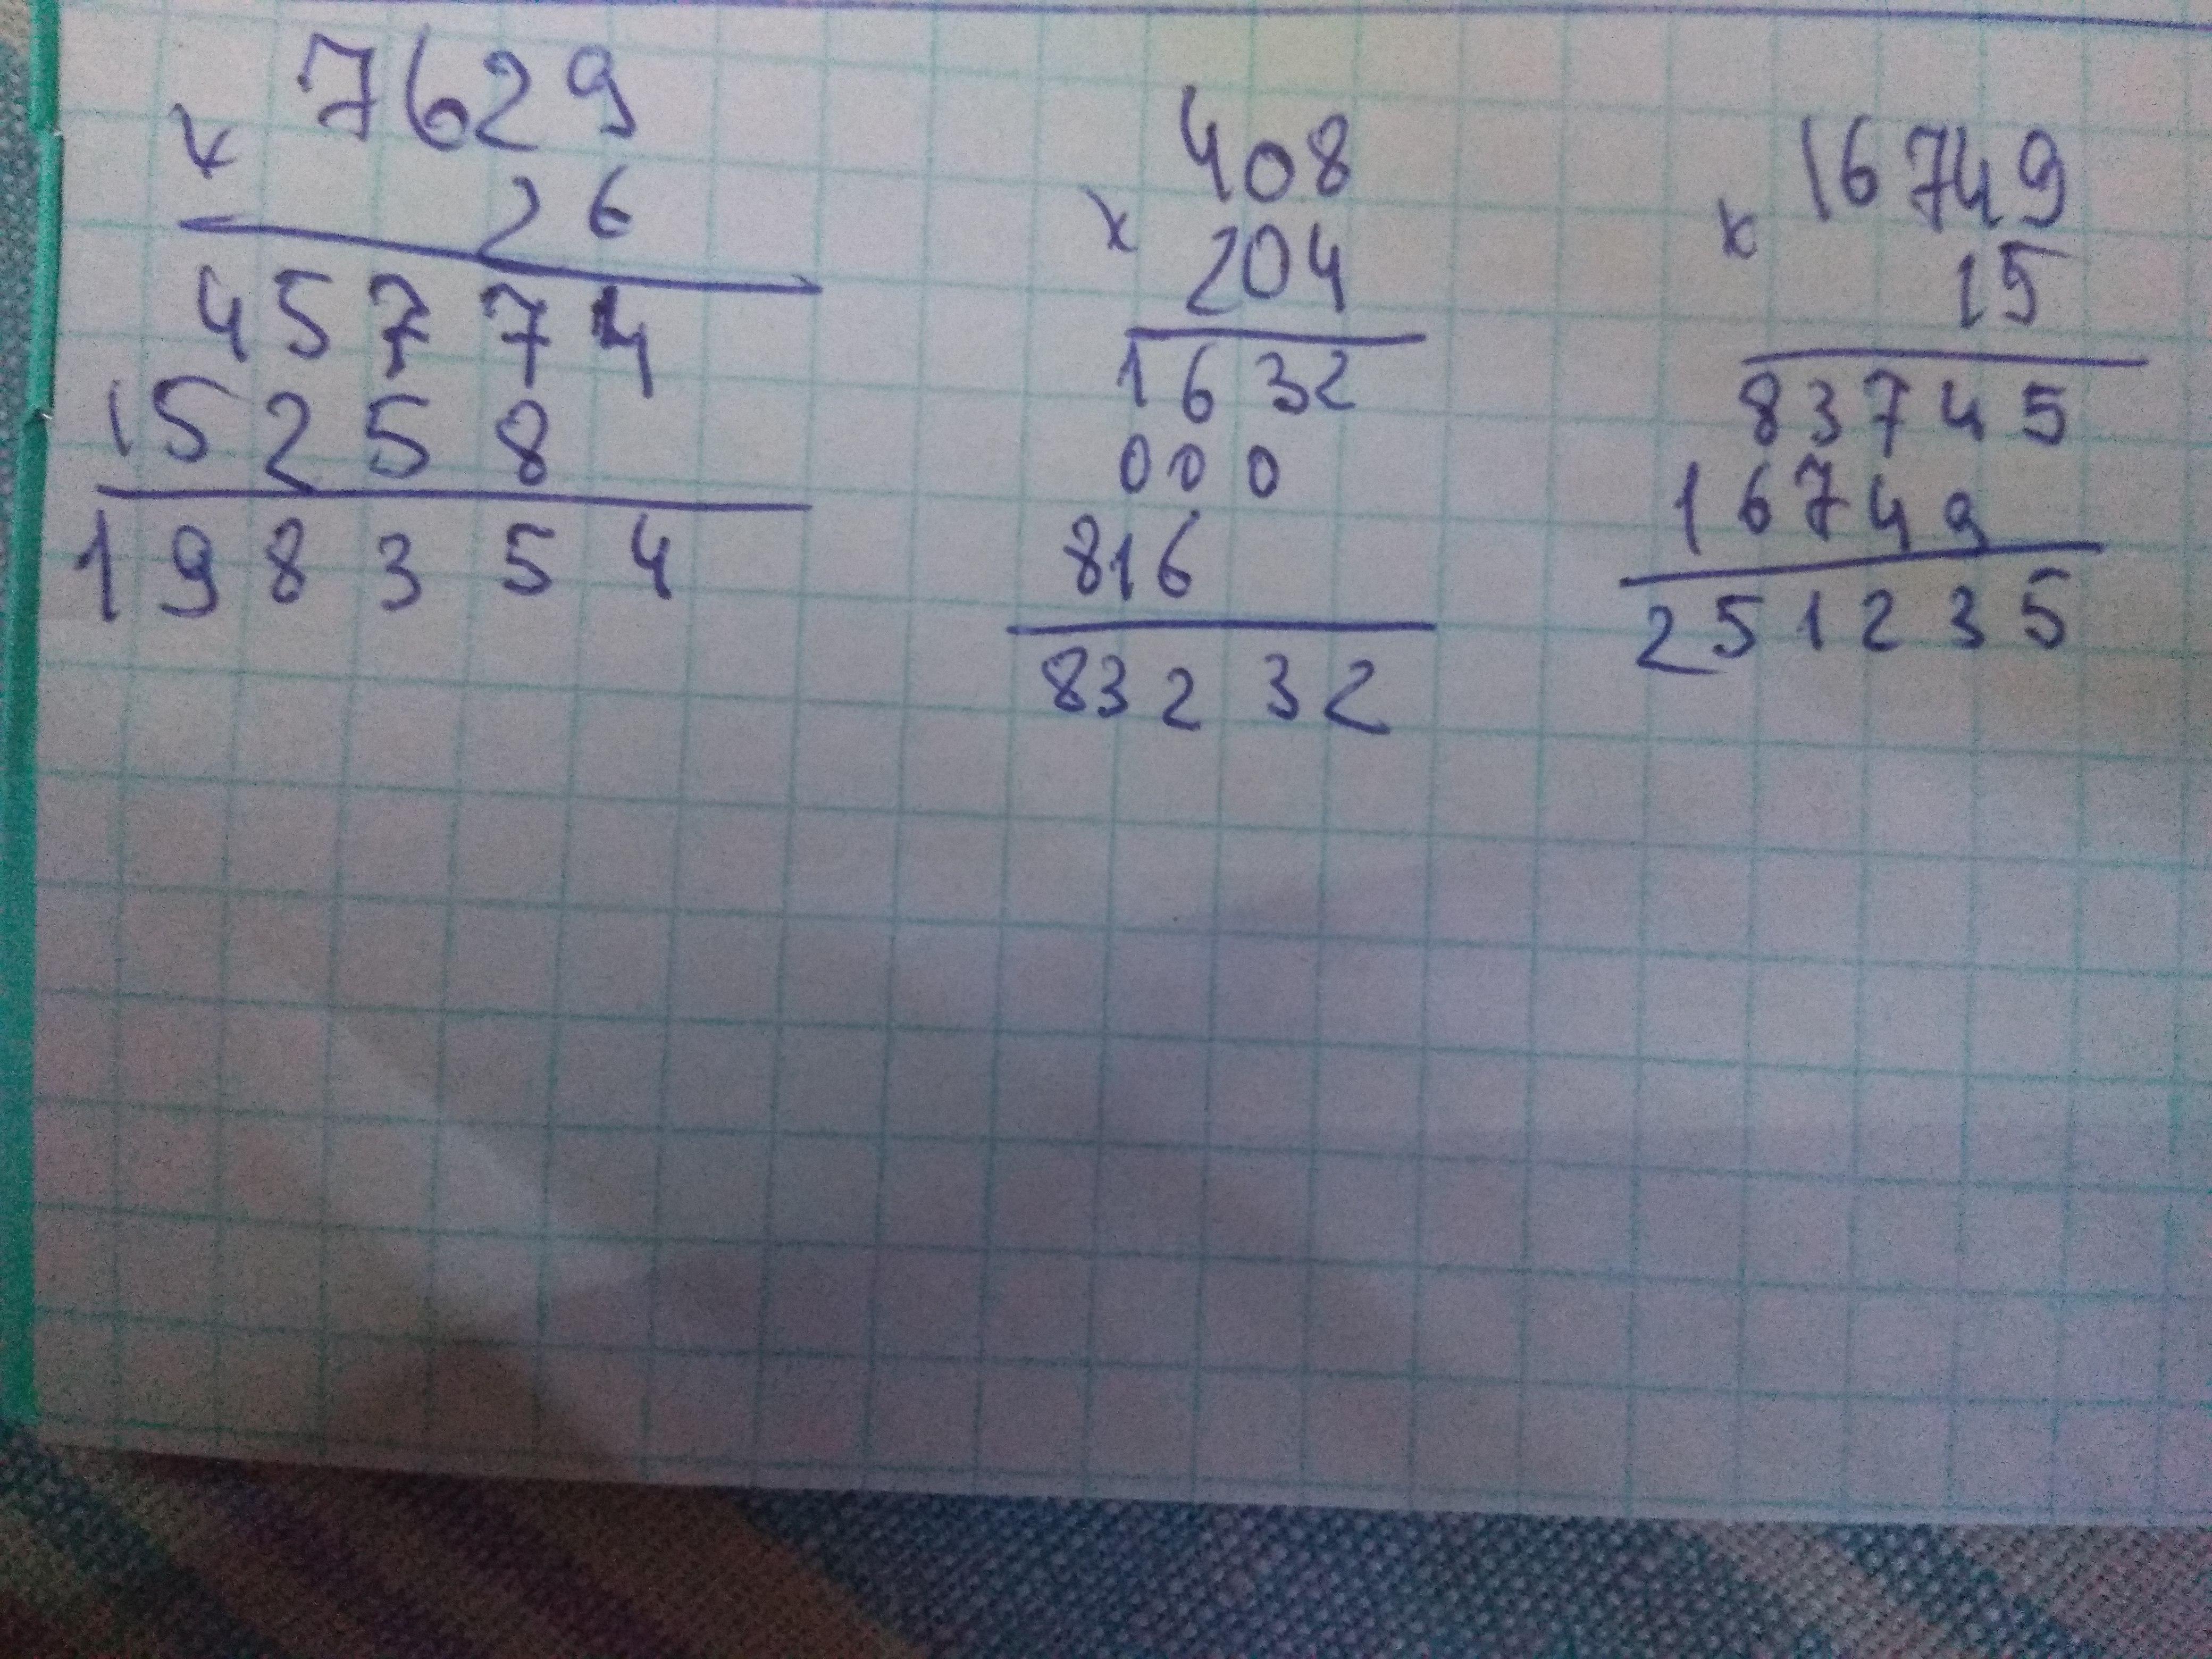 7629
x
26
45774
15258
198354
408
x
204
1632
000
816
83232
16749
x
15
83745
16749
251235